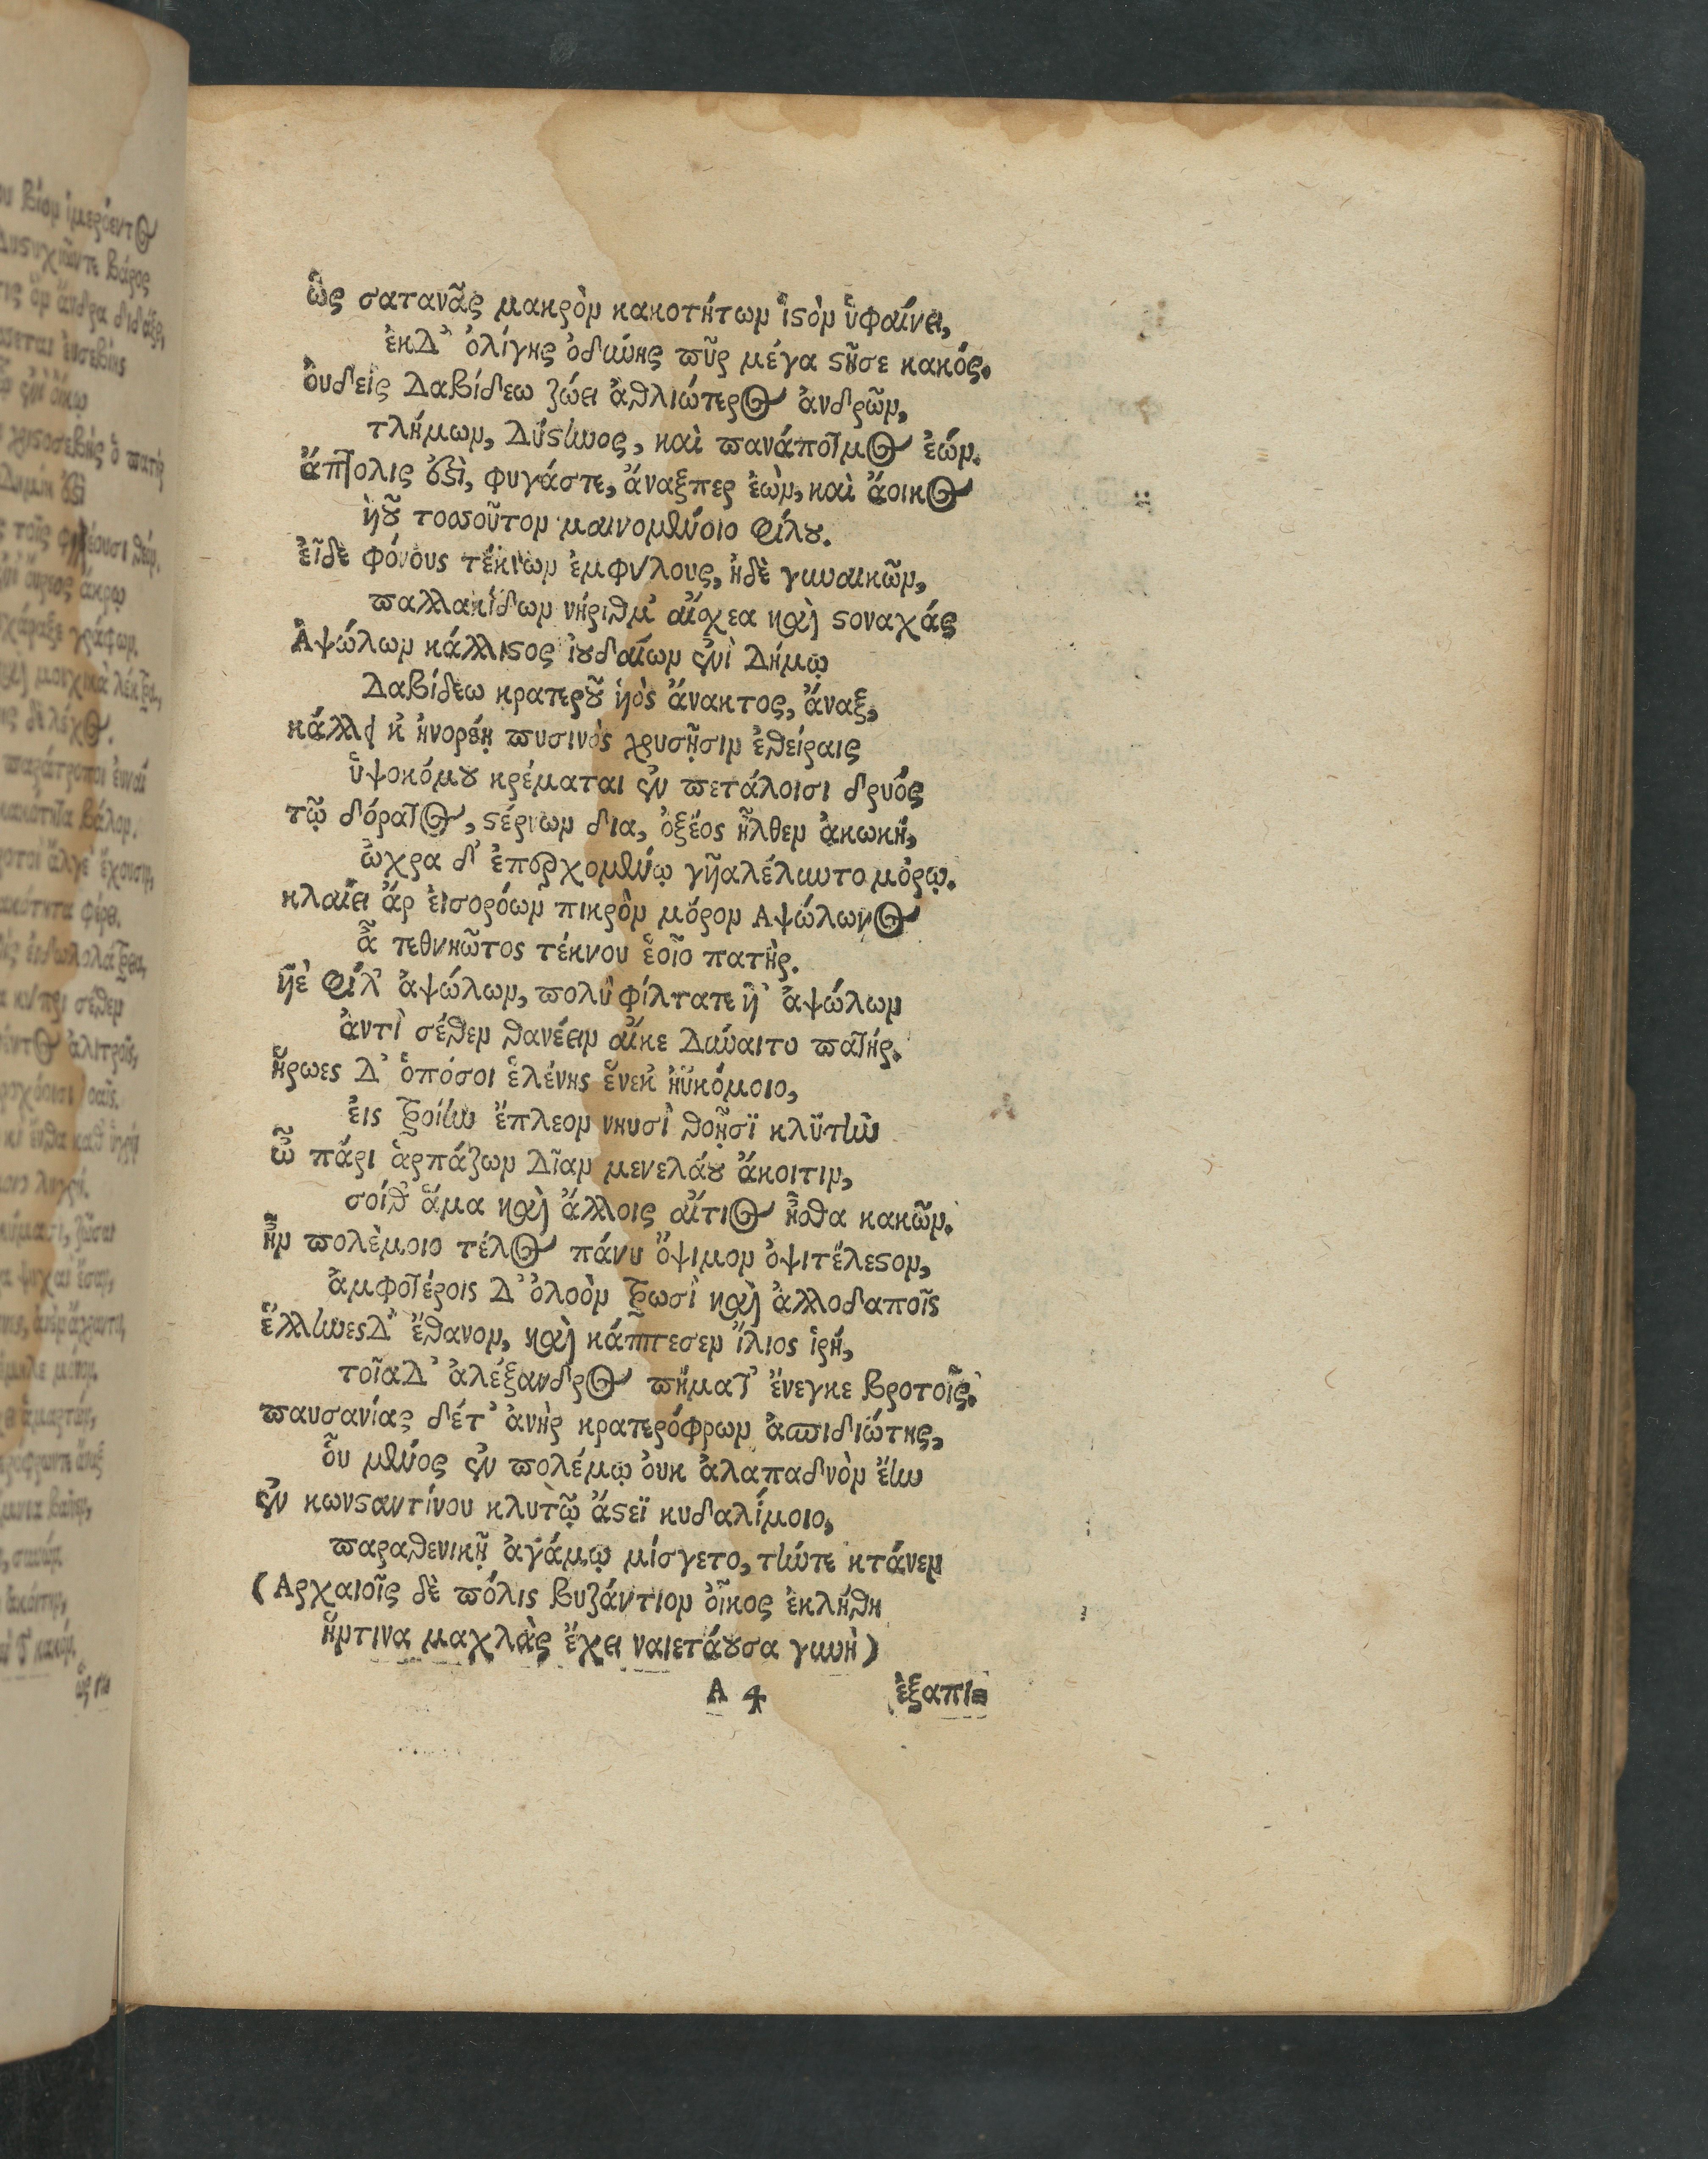 ὣς σατανᾶς μακρὸν κακοτήτων ἱστὸν ὑφαίνει,
ἐκ δ' ὀλίγης ὀδύνης πῦρ μέγα στῆσε κακός.
ὀυδεὶς Δαβίδεω ζώει ἀθλιώτερος ἀνδρῶν,
τλήμων, δύστηνος, καὶ πανάποτμος ἐών.
ἄπτολις ἐστὶ, φυγάστε, ἄναξπερ ἐὼν, καὶ ἄοικος
ἡοῦ τοσσοῦτον μαινομένοιο φίλου.
ἐῖδε φόνους τέκνων ἐμφύλους, ἠδὲ γυναικῶν,
παλλακίδων νήριθμ' αἴσχεα καὶ στοναχάς
Ἀψώλων κάλλιστος ἰουδαίων ἐνὶ δήμῳ
Δαβίδεω κρατεροῦ ἡὸς ἄνακτος, ἄναξ,
κάλλει κ' ἠνορέῃ πυσινὸς χρυσῇσιν ἐθείραις
ὑψοκόμου κρέμαται ἐν πετάλοισι δρυός
τῷ δόρατος, στέρνων δια, ὀξέος ἦλθεν ἀκωκή,
ὦχρα δ' ἐπερχομένῳ γῆα λέλυντο μόρῳ.
κλαίει ἂρ ἐισορόων πικρὸν μόρον Αψώλωνος
ἆ τεθνηῶτος τέκνου ἑοῖο πατὴρ.
ἡὲ φίλ' ἀψώλων, πολὺ φίλτατε ἡ' ἀψώλων
ἀντὶ σέθεν θανέειν αἴκε δύναιτο πατήρ.
ἥρωες δ' ὁπόσοι ἑλένης ἕνεκ' ἠϋκόμοιο,
ἐις τροίην ἔπλεον νηυσὶ θοῇσϊ κλύτην
ὦ πάρι ἁρπάζων δῖαν μενελάου ἄκοιτιν,
σοίθ' ἅμα καὶ ἄλλοις αἴτιος ἦσθα κακῶν.
ἦν πολέμοιο τέλος πάνυ ὄψιμον ὀψιτέλεστον,
ἀμφοτέροις δ' ὀλοὸν τρωσὶ καὶ ἀλλοδαποῖς
ἕλληνες δ' ἔθανον, καὶ κάππεσεν ἴλιος ἱρή,
τοῖα δ' ἀλέξανδρος πήματ' ἔνεγκε βροτοῖς.
παυσανίας δέτ' ἀνὴρ κρατερόφρων ἀσπιδιώτης,
οὗ μένος ἐν πολέμῳ ὀυκ ἀλαπαδνὸν ἔην
ἐν κωνσταντίνου κλυτῷ ἄστεϊ κυδαλίμοιο,
παραθενικῇ ἀγάμῳ μίσγετο, τήντε κτάνεν
(Αρχαιοῖς δὲ πόλις βυζάντιον ὀῖκος ἐκλήθη
ἥντινα μαχλὰς ἔχει ναιετάουσα γυνὴ)
A 4 ἐξαπι=